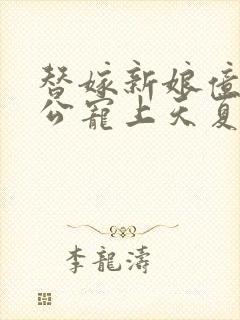 替嫁新娘億
公寵上天夏
李龍濤